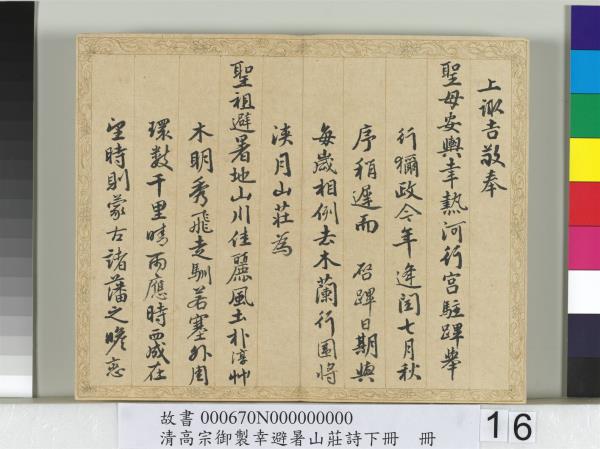 上諏吉敬奉
聖母安輿幸熱河行宮駐蹕舉
行獮政今年逢閏七月秋
序稍遲而 啟蹕日期與
每歲相例去木蘭行圍將
浹月山莊為
聖祖避暑地山川佳麗風土朴淳艸
木明秀飛走馴若塞外周
環數千里晴雨應時西成在
望時則蒙古諸藩之瞻戀
故書 000670N000000000
清高宗御製幸避暑山莊詩下冊 冊
16